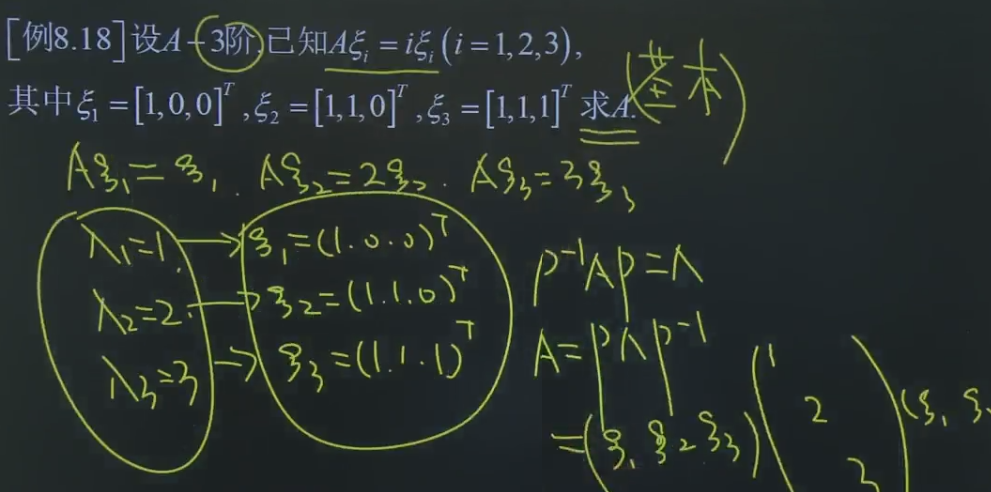 [例8.18]设A-3阶,已知Aξᵢ=iξᵢ(i=1,2,3),
其中ξ₁=[1,0,0]ᵀ,ξ₂=[1,1,0]ᵀ,ξ₃=[1,1,1]ᵀ 求A.(基本)
Aξ₁=ξ₁. Aξ₂=2ξ₂. Aξ₃=3ξ₃
λ₁=1 → ξ₁=(1.0.0)ᵀ
λ₂=2. → ξ₂=(1.1.0)ᵀ
λ₃=3 → ξ₃=(1.1.1)ᵀ
P⁻¹AP=Λ
A=PΛP⁻¹
=(ξ₁ ξ₂ ξ₃)(1 2 3)(ξ₁ ξ